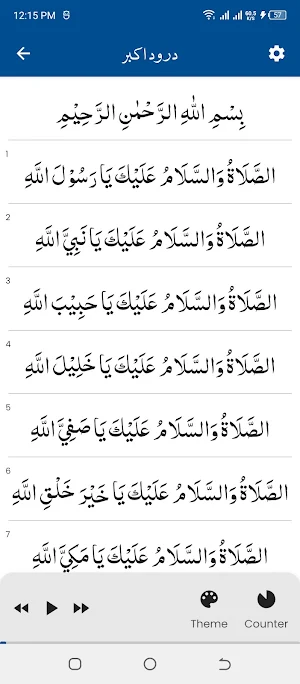 12:15 PM 60.5 K/s 57
درود اکبر
بِسْمِ اللهِ الرَّحْمٰنِ الرَّحِيْمِ
1
الصَّلَاةُ وَالسَّلَامُ عَلَيْكَ يَا رَسُوْلَ اللَّهِ
2
الصَّلَاةُ وَالسَّلَامُ عَلَيْكَ يَا نَبِيَّ اللَّهِ
3
الصَّلَاةُ وَالسَّلَامُ عَلَيْكَ يَا حَبِيْبَ اللَّهِ
4
الصَّلَاةُ وَالسَّلَامُ عَلَيْكَ يَا خَلِيْلَ اللَّهِ
5
الصَّلَاةُ وَالسَّلَامُ عَلَيْكَ يَا صَفِيَّ اللَّهِ
6
الصَّلَاةُ وَالسَّلَامُ عَلَيْكَ يَا خَيْرَ خَلْقِ اللَّهِ
7
الصَّلَاةُ وَالسَّلَامُ عَلَيْكَ يَا مَكِيَّ اللَّهِ
Theme Counter